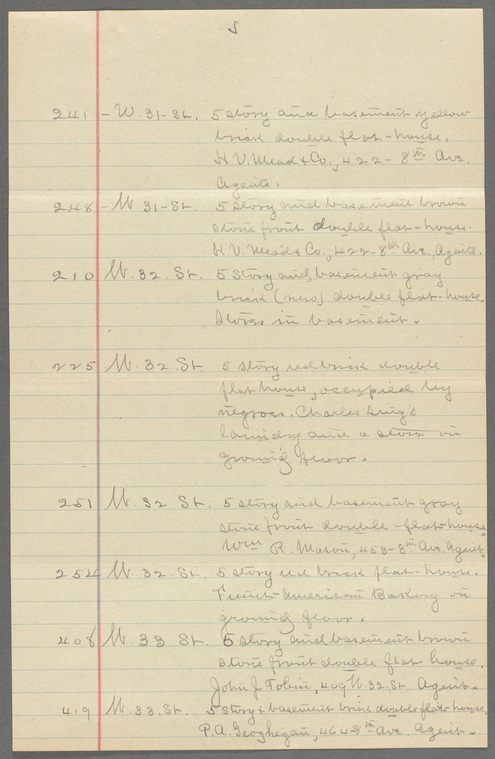 5
241 - W. 31 - St. 5 story and basement yellow
brick double flat-house.
H. V. Mead & Co., 422 - 8th Ave.
Agents.
248 - W 31 - St. 5 story and basement brown
stone front double flat-house.
H V. Mead & Co., 422-8th Ave, Agents.
210 W. 32 St. 5 story and basement gray
brick (new) double flat-house
Stores in basement.
225 W. 32 St. 5 story red brick double
flat house, occupied by
negroes. Charles Sing's
laundry and a store on
ground floor.
251 W. 32 St. 5 story and basement gray
stone front double-flat-house
Wm R. Mason, 453-8th Ave. Agent.
254 W. 32 St. 5 story red brick flat-house.
French-American Bakery on
ground floor.
408 W. 33 St. 5 story and basement brown
stone front double flat house.
John J. Tobin, 409 W. 32. St. Agent.
419 W. 33. St. 5 story & basement brick double flat house
P. A. Geoghegan, 464 8th Ave. Agent.